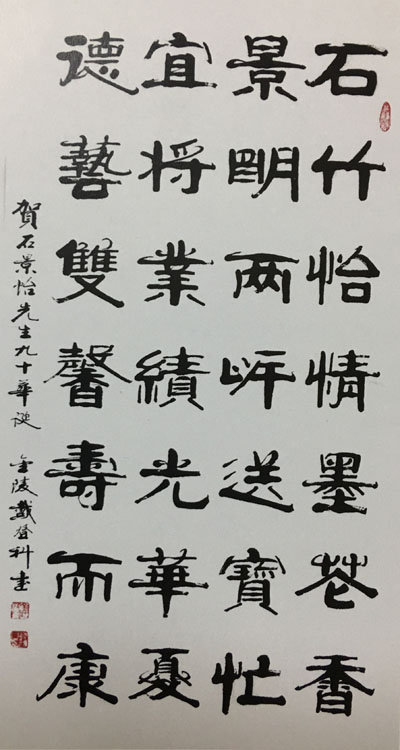 石竹怡情墨花香
景明两岸送寶忙
宜将業績光華夏
德藝雙馨壽而康
賀石景怡先生九十華诞 金陵戴登科书